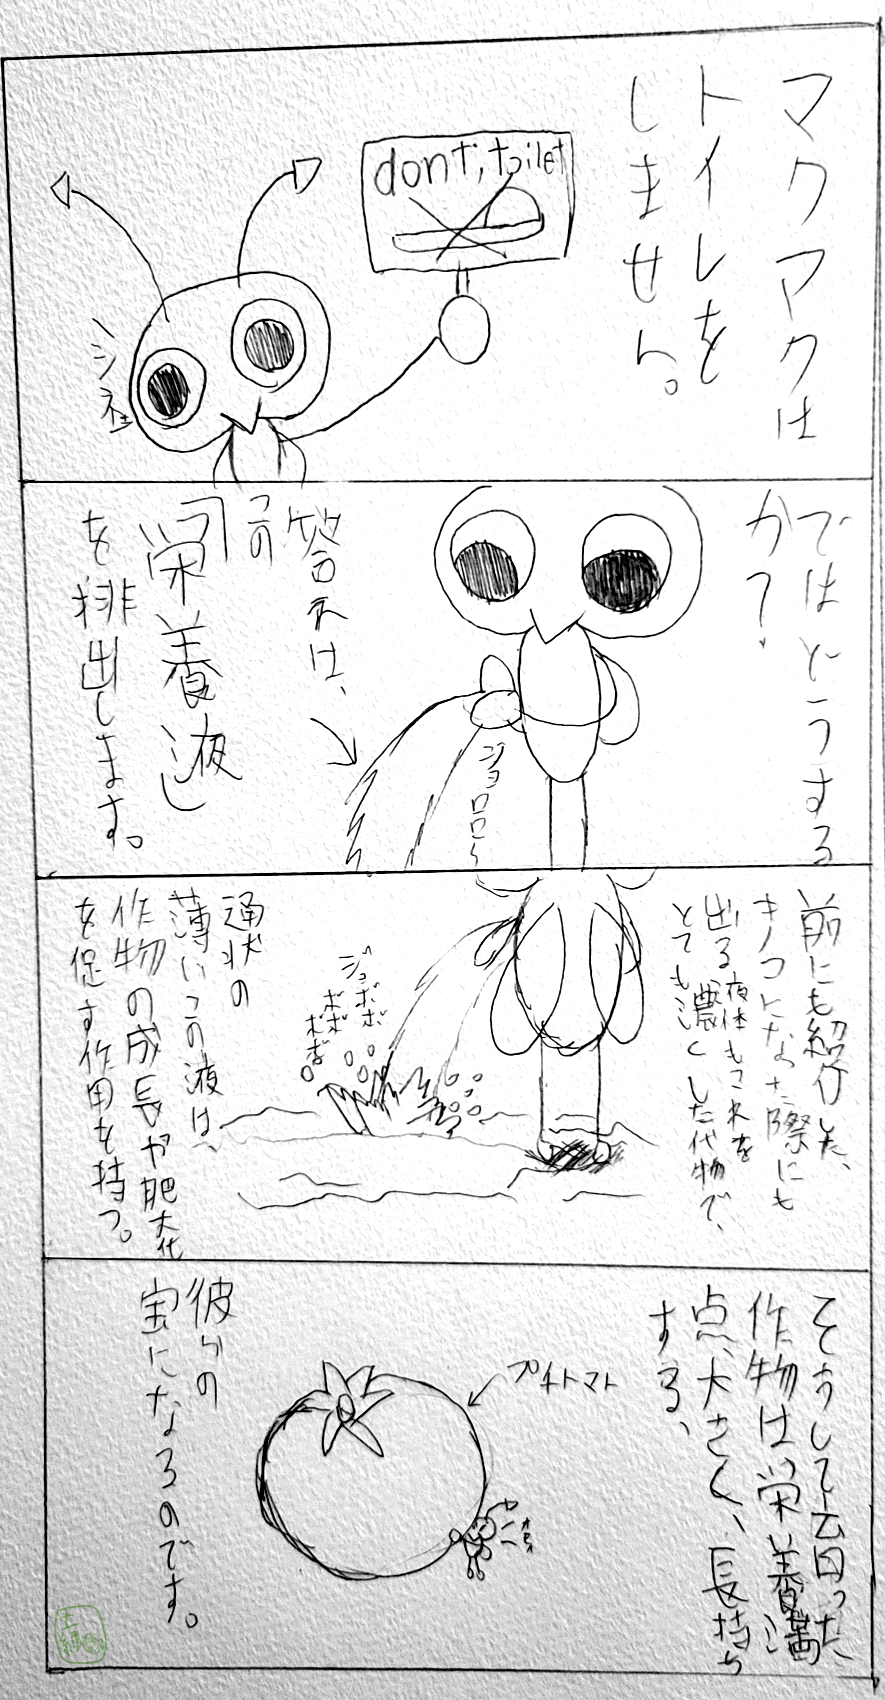 マクマクは
トイレを
しません。
dont, toilet
シネ
ではどうする
か？
答えは、
この
「栄養液」
を排出します。
ジョロロロ
前にも紹介した、
キノコになった際にも
出る液体もこれを
とても濃くした代物で、
ジョボボ
ボボ
ボボ
通状の
薄いこの液は、
作物の成長や肥大化
を促す作用を持つ。
そうして育った
作物は栄養満
点、大きく、長持ち
する、
プチトマト
彼らの
宝になるのです。